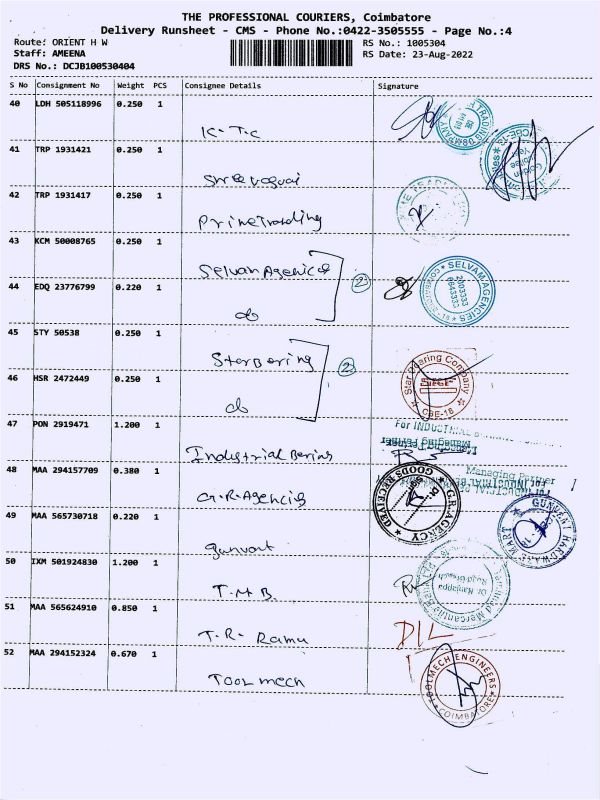 THE PROFESSIONAL COURIERS, Coimbatore
Delivery Runsheet - CMS - Phone No.:0422-3505555 - Page No.:4
Route: ORIENT H W
RS No.: 1005304
Staff: AMEENA
RS Date: 23-Aug-2022
DRS No.: DCJB100530404
S No Consignment No Weight PCS Consignee Details Signature
40 LDH 505118996 0.250 1
K.T.C
41 TRP 1931421 0.250 1
42 TRP 1931417 0.250 1
Prime Trading
43 KCM 50008765 0.250 1
Selvam Agencies
SELVAM AGENCIES
2003333
COIMBATORE - 18
44 EDQ 23776799 0.220 1
do
2
45 STY 50538 0.250 1
Star Bering
Star Bearing Company
CBE-18
46 HSR 2472449 0.250 1
do
2
47 PON 2919471 1.200 1
For INDUSTRIAL
Managing Partner
Industrial Bering
48 MAA 294157709 0.380 1
Managing Partner
For INDUSTRIAL
G.R. Agencies
GOODS RECEIVED
G.R. AGENCY
49 MAA 565730718 0.220 1
GUNVANT HARDWARE MART
Gunvant
50 IXM 501924830 1.200 1
T.M.B
51 MAA 565624910 0.850 1
T.R. Ramu
D/L
52 MAA 294152324 0.670 1
Toolmech
TOOLMECH ENGINEERS
COIMBATORE